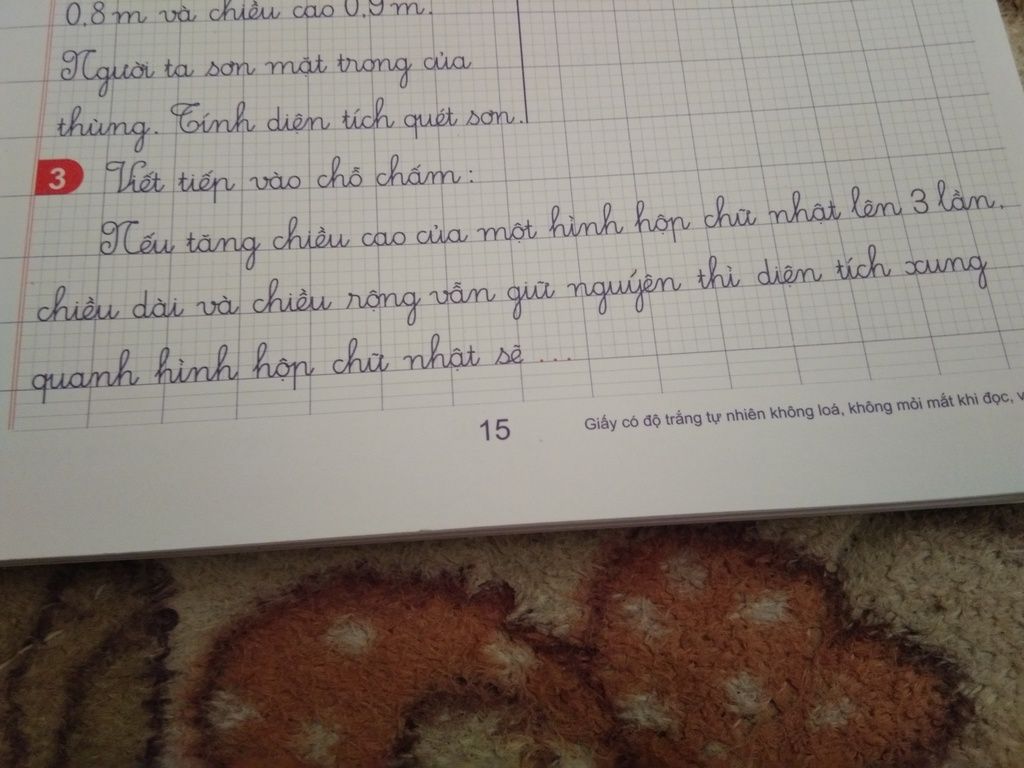 0,8m và chiều cao 0,9m.
Người ta sơn mặt trong của
thùng. Tính diện tích quét sơn.
3 Viết tiếp vào chỗ chấm:
Nếu tăng chiều cao của một hình hộp chữ nhật lên 3 lần,
chiều dài và chiều rộng vẫn giữ nguyên thì diện tích xung
quanh hình hộp chữ nhật sẽ ...
15
Giấy có độ trắng tự nhiên không loá, không mỏi mắt khi đọc, v